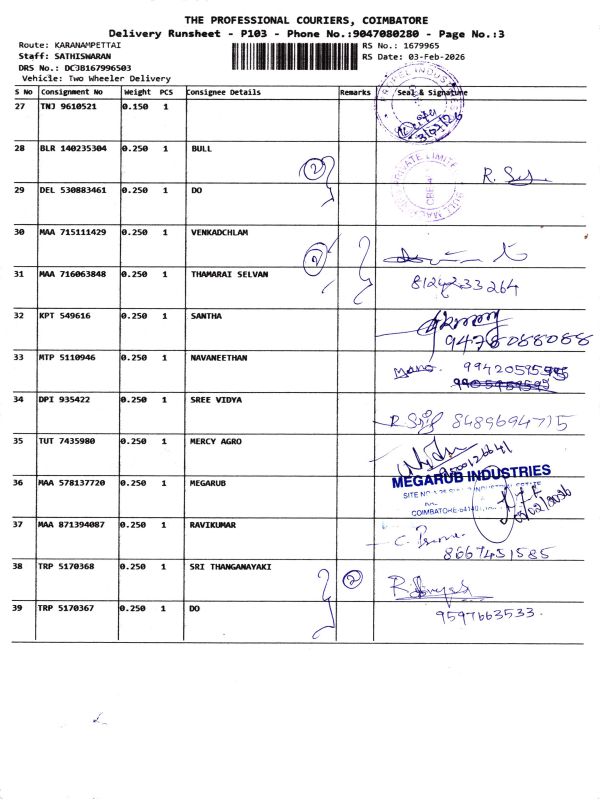 THE PROFESSIONAL COURIERS, COIMBATORE
Delivery Runsheet - P103 - Phone No.:9047080280 - Page No.:3
Route: KARANAMPETTAI
RS No.: 1679965
Staff: SATHISWARAN
RS Date: 03-Feb-2026
DRS No.: DCJ8167996503
Vehicle: Two Wheeler Delivery
S No Consignment No Weight PCS Consignee Details Remarks Seal & Signature
27 TNJ 9610521 0.150 1
28 BLR 140235304 0.250 1 BULL
2
29 DEL 530883461 0.250 1 DO
30 MAA 715111429 0.250 1 VENKADCHLAM
2
31 MAA 716063848 0.250 1 THAMARAI SELVAN 8124233264
32 KPT 549616 0.250 1 SANTHA
33 MTP 5110946 0.250 1 NAVANEETHAN Mano
34 DPI 935422 0.250 1 SREE VIDYA 8489694715
35 TUT 7435980 0.250 1 MERCY AGRO
36 MAA 578137720 0.250 1 MEGARUB MEGARUB INDUSTRIES
37 MAA 871394087 0.250 1 RAVIKUMAR
8667451585
38 TRP 5170368 0.250 1 SRI THANGANAYAKI 2
39 TRP 5170367 0.250 1 DO 9597663533.